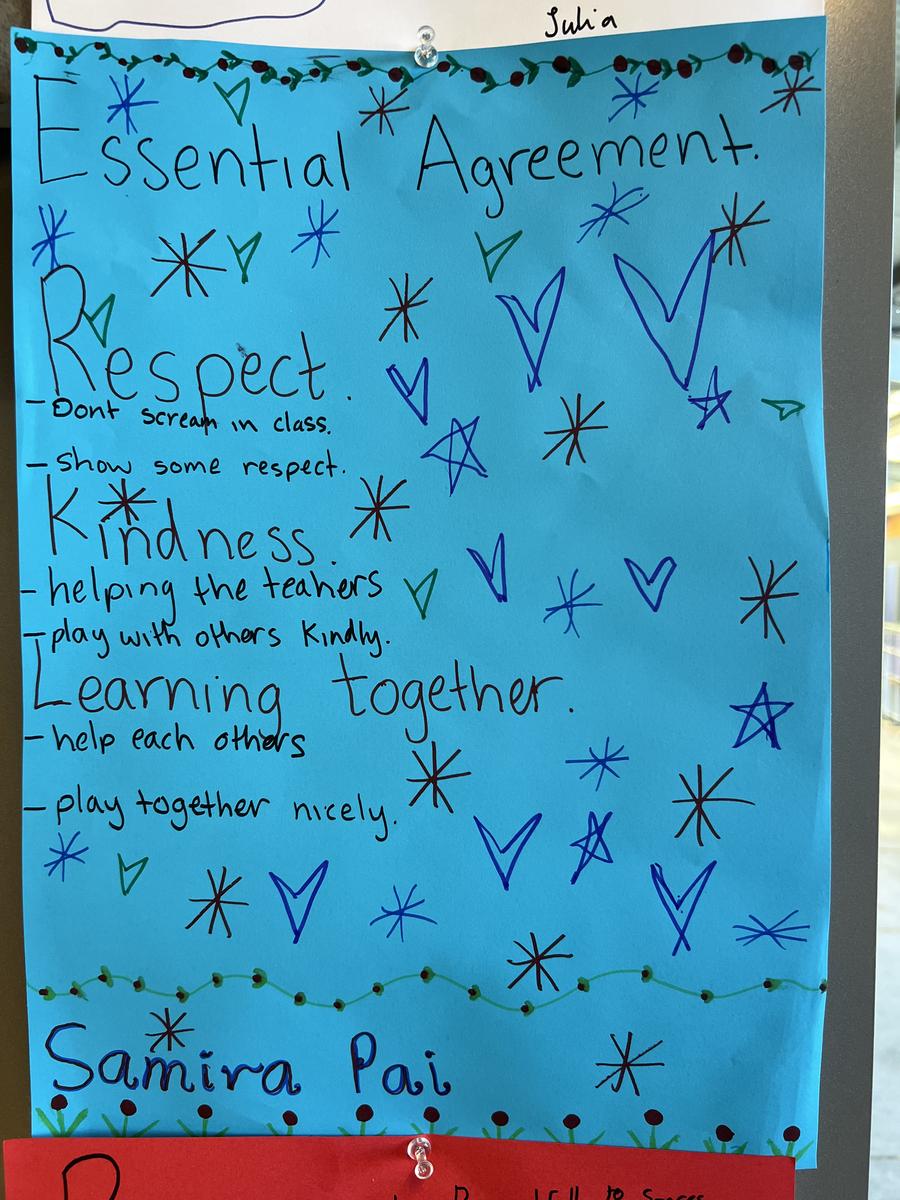 Julia
Essential Agreement.
Respect.
- Dont scream in class.
- show some respect.
Kindness.
- helping the teahers
- play with others Kindly.
Learning together.
- help each others
- play together nicely.
Samira Pai